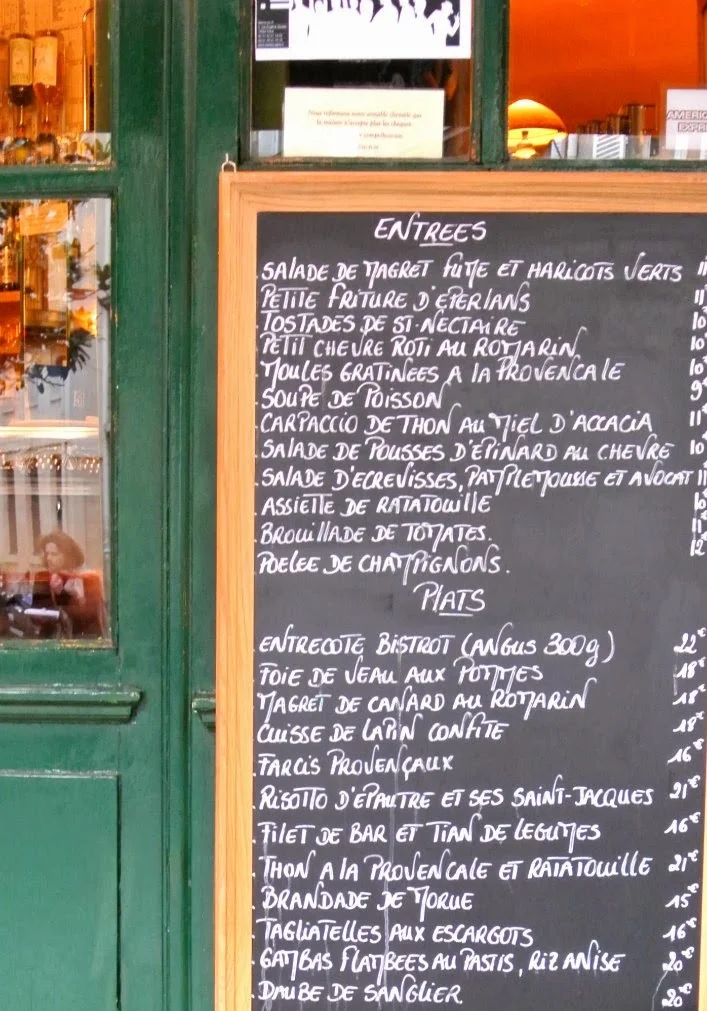 Nous informons notre aimable clientèle que
la maison n'accepte plus les chèques.
AMERIC
EXPR
ENTREES
SALADE DE MAGRET FUME ET HARICOTS VERTS 11
PETITE FRITURE D'EPERLANS 11
TOSTADES DE ST-NECTAIRE 10
PETIT CHEVRE ROTI AU ROMARIN 10
MOULES GRATINEES A LA PROVENCALE 10
SOUPE DE POISSON 9€
CARPACCIO DE THON AU MIEL D'ACCACIA 11
SALADE DE POUSSES D'EPINARD AU CHEVRE 10
SALADE D'ECREVISSES, PAMPLEMOUSSE ET AVOCAT 11
ASSIETTE DE RATATOUILLE 10
BROUILLADE DE TOMATES. 11€
POELEE DE CHAMPIGNONS. 12€
PLATS
ENTRECOTE BISTROT (ANGUS 300g) 22€
FOIE DE VEAU AUX POMMES 18€
MAGRET DE CANARD AU ROMARIN 18€
CUISSE DE LAPIN CONFITE 18€
FARCIS PROVENÇAUX 16€
RISOTTO D'EPAUTRE ET SES SAINT-JACQUES 21€
FILET DE BAR ET TIAN DE LEGUMES 16€
THON A LA PROVENCALE ET RATATOUILLE 21€
BRANDADE DE MORUE 15€
TAGLIATELLES AUX ESCARGOTS 16€
GAMBAS FLAMBEES AU PASTIS, RIZ ANISE 20€
DAUBE DE SANGLIER 20€